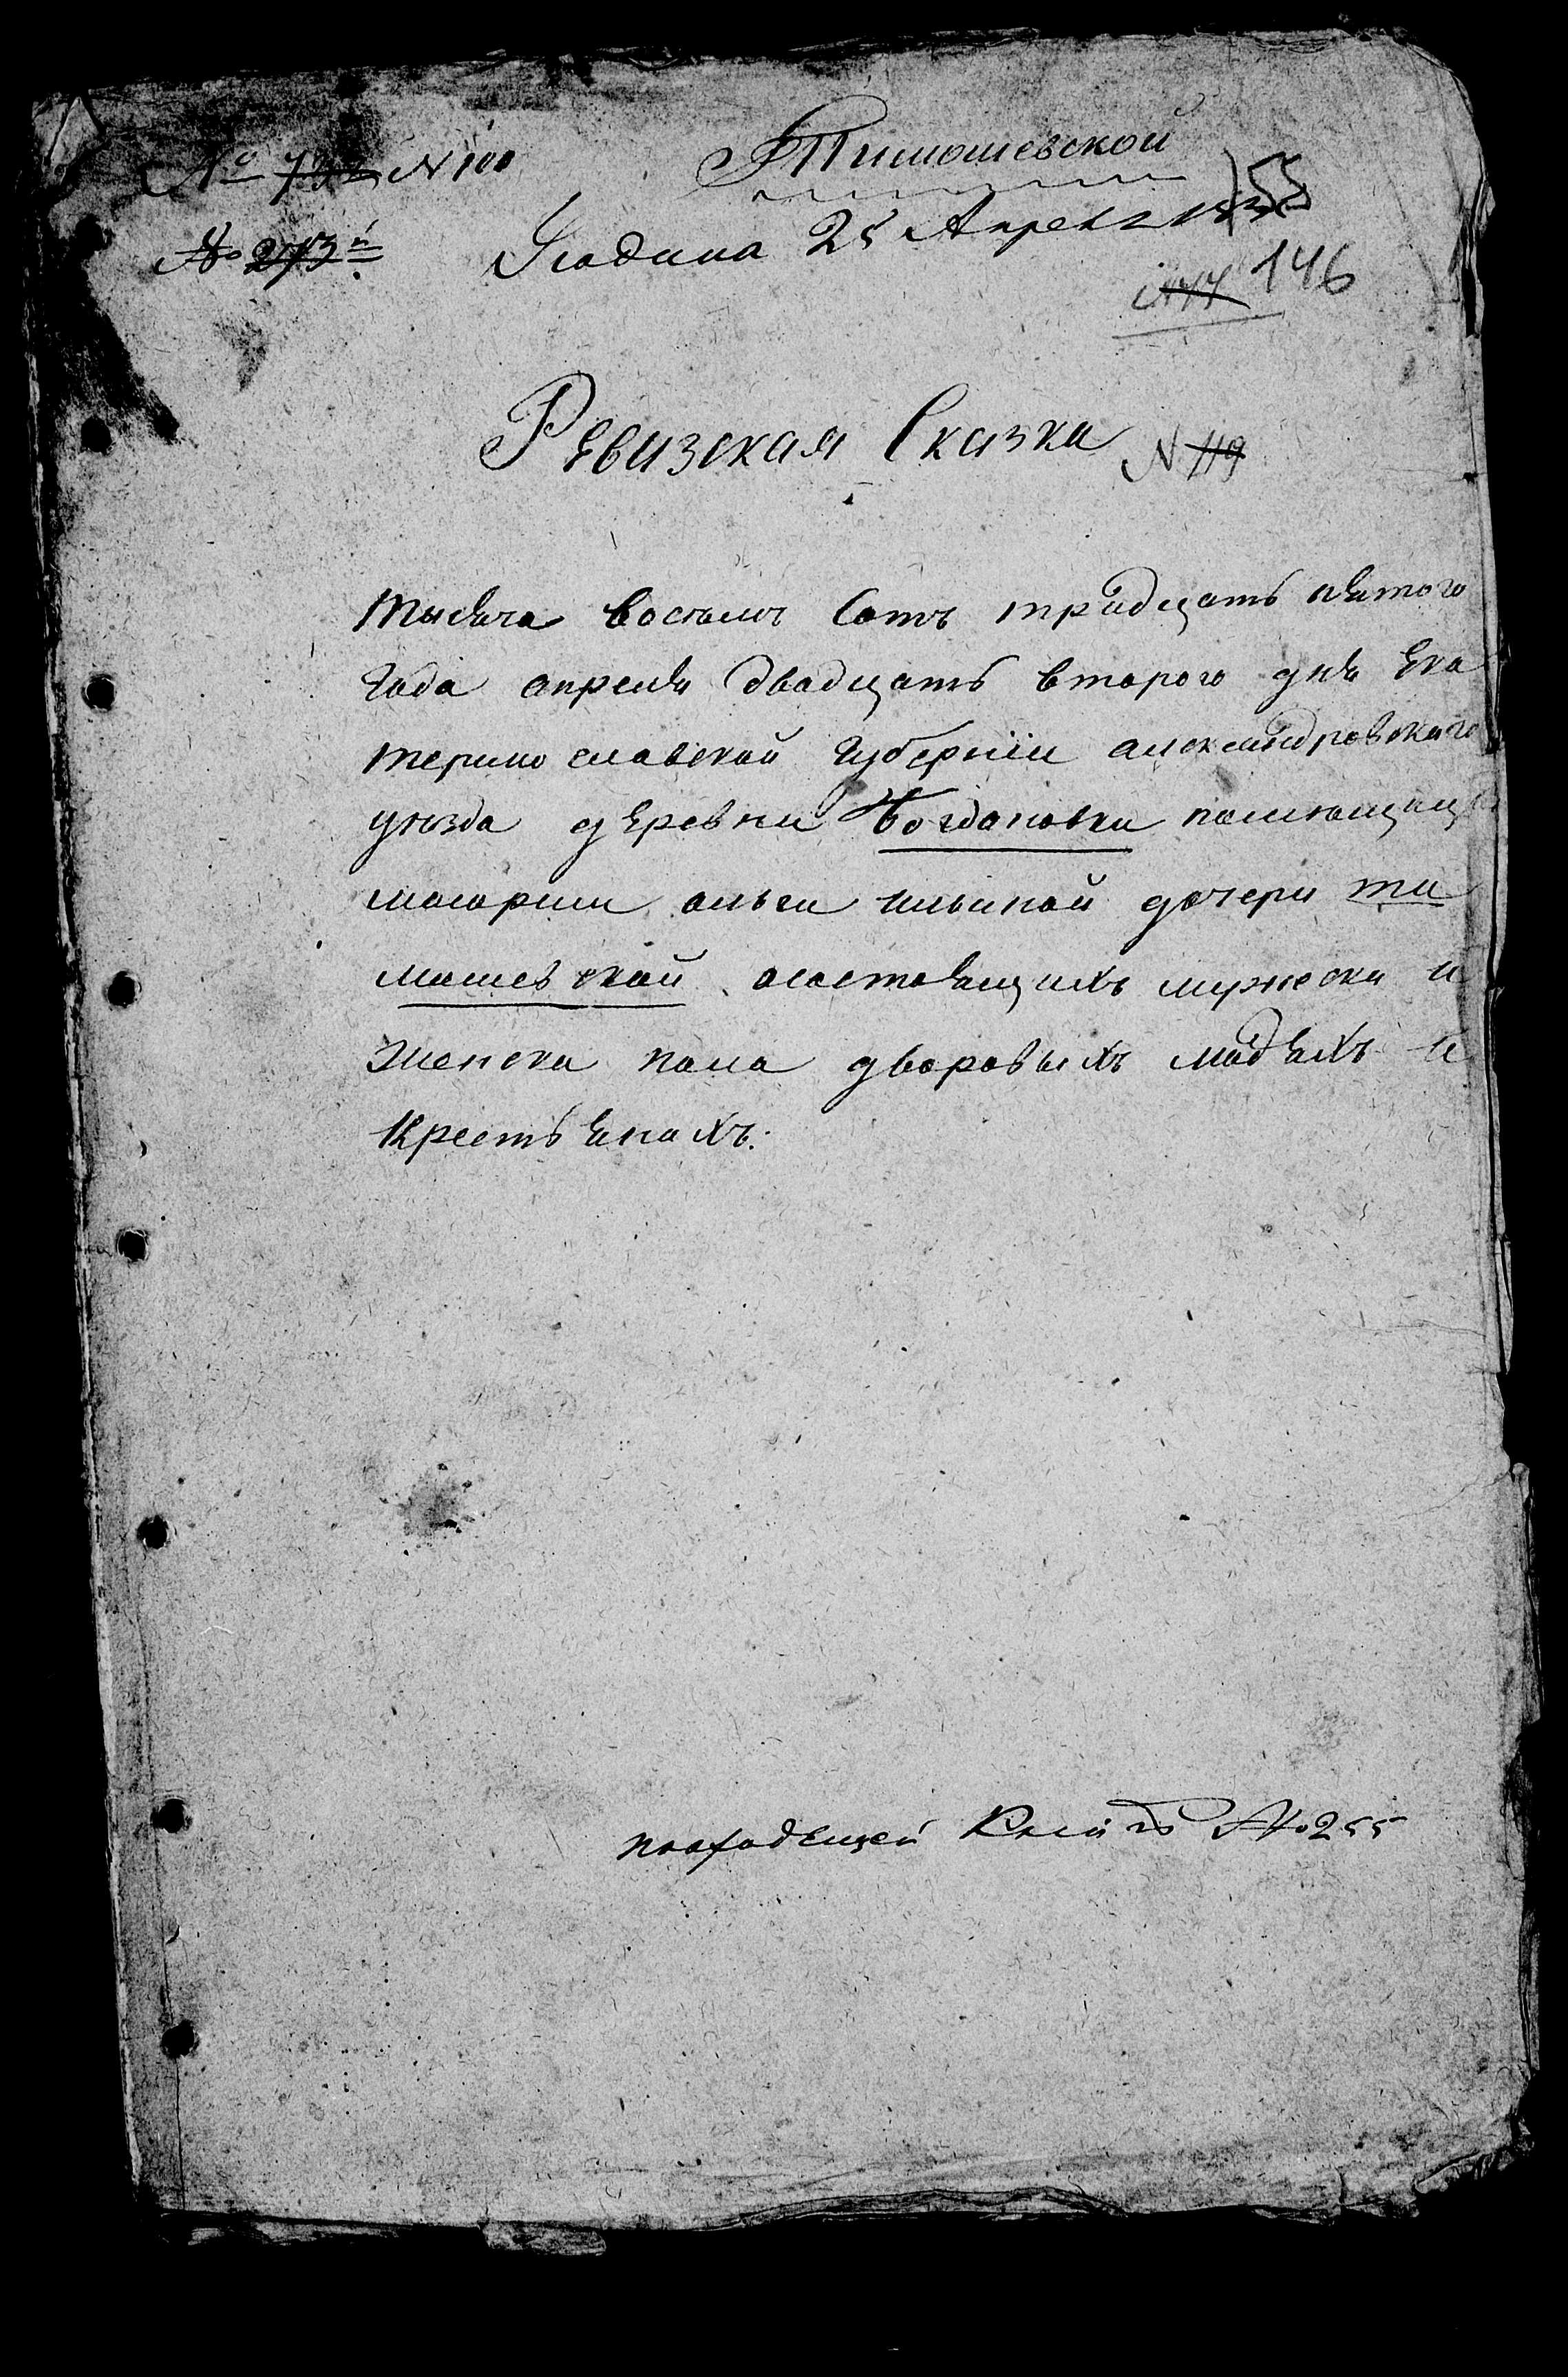 № N 100
Тимошевской
№ 273
Подана 25 Апреля
55
146
N 77
Ревизская Сказка N 119
тысяча восемь сотъ тридцать пятого
года апреля двадцать второго дня Ека
терино славской губернiи александровского
уезда деревни Богдановки помющицы
маiорши ольги ильиной дочери ти
мошев ской осостоящихъ мужеска и
женска пола дворовыхъ людяхъ и
крестьянахъ.
№ 255